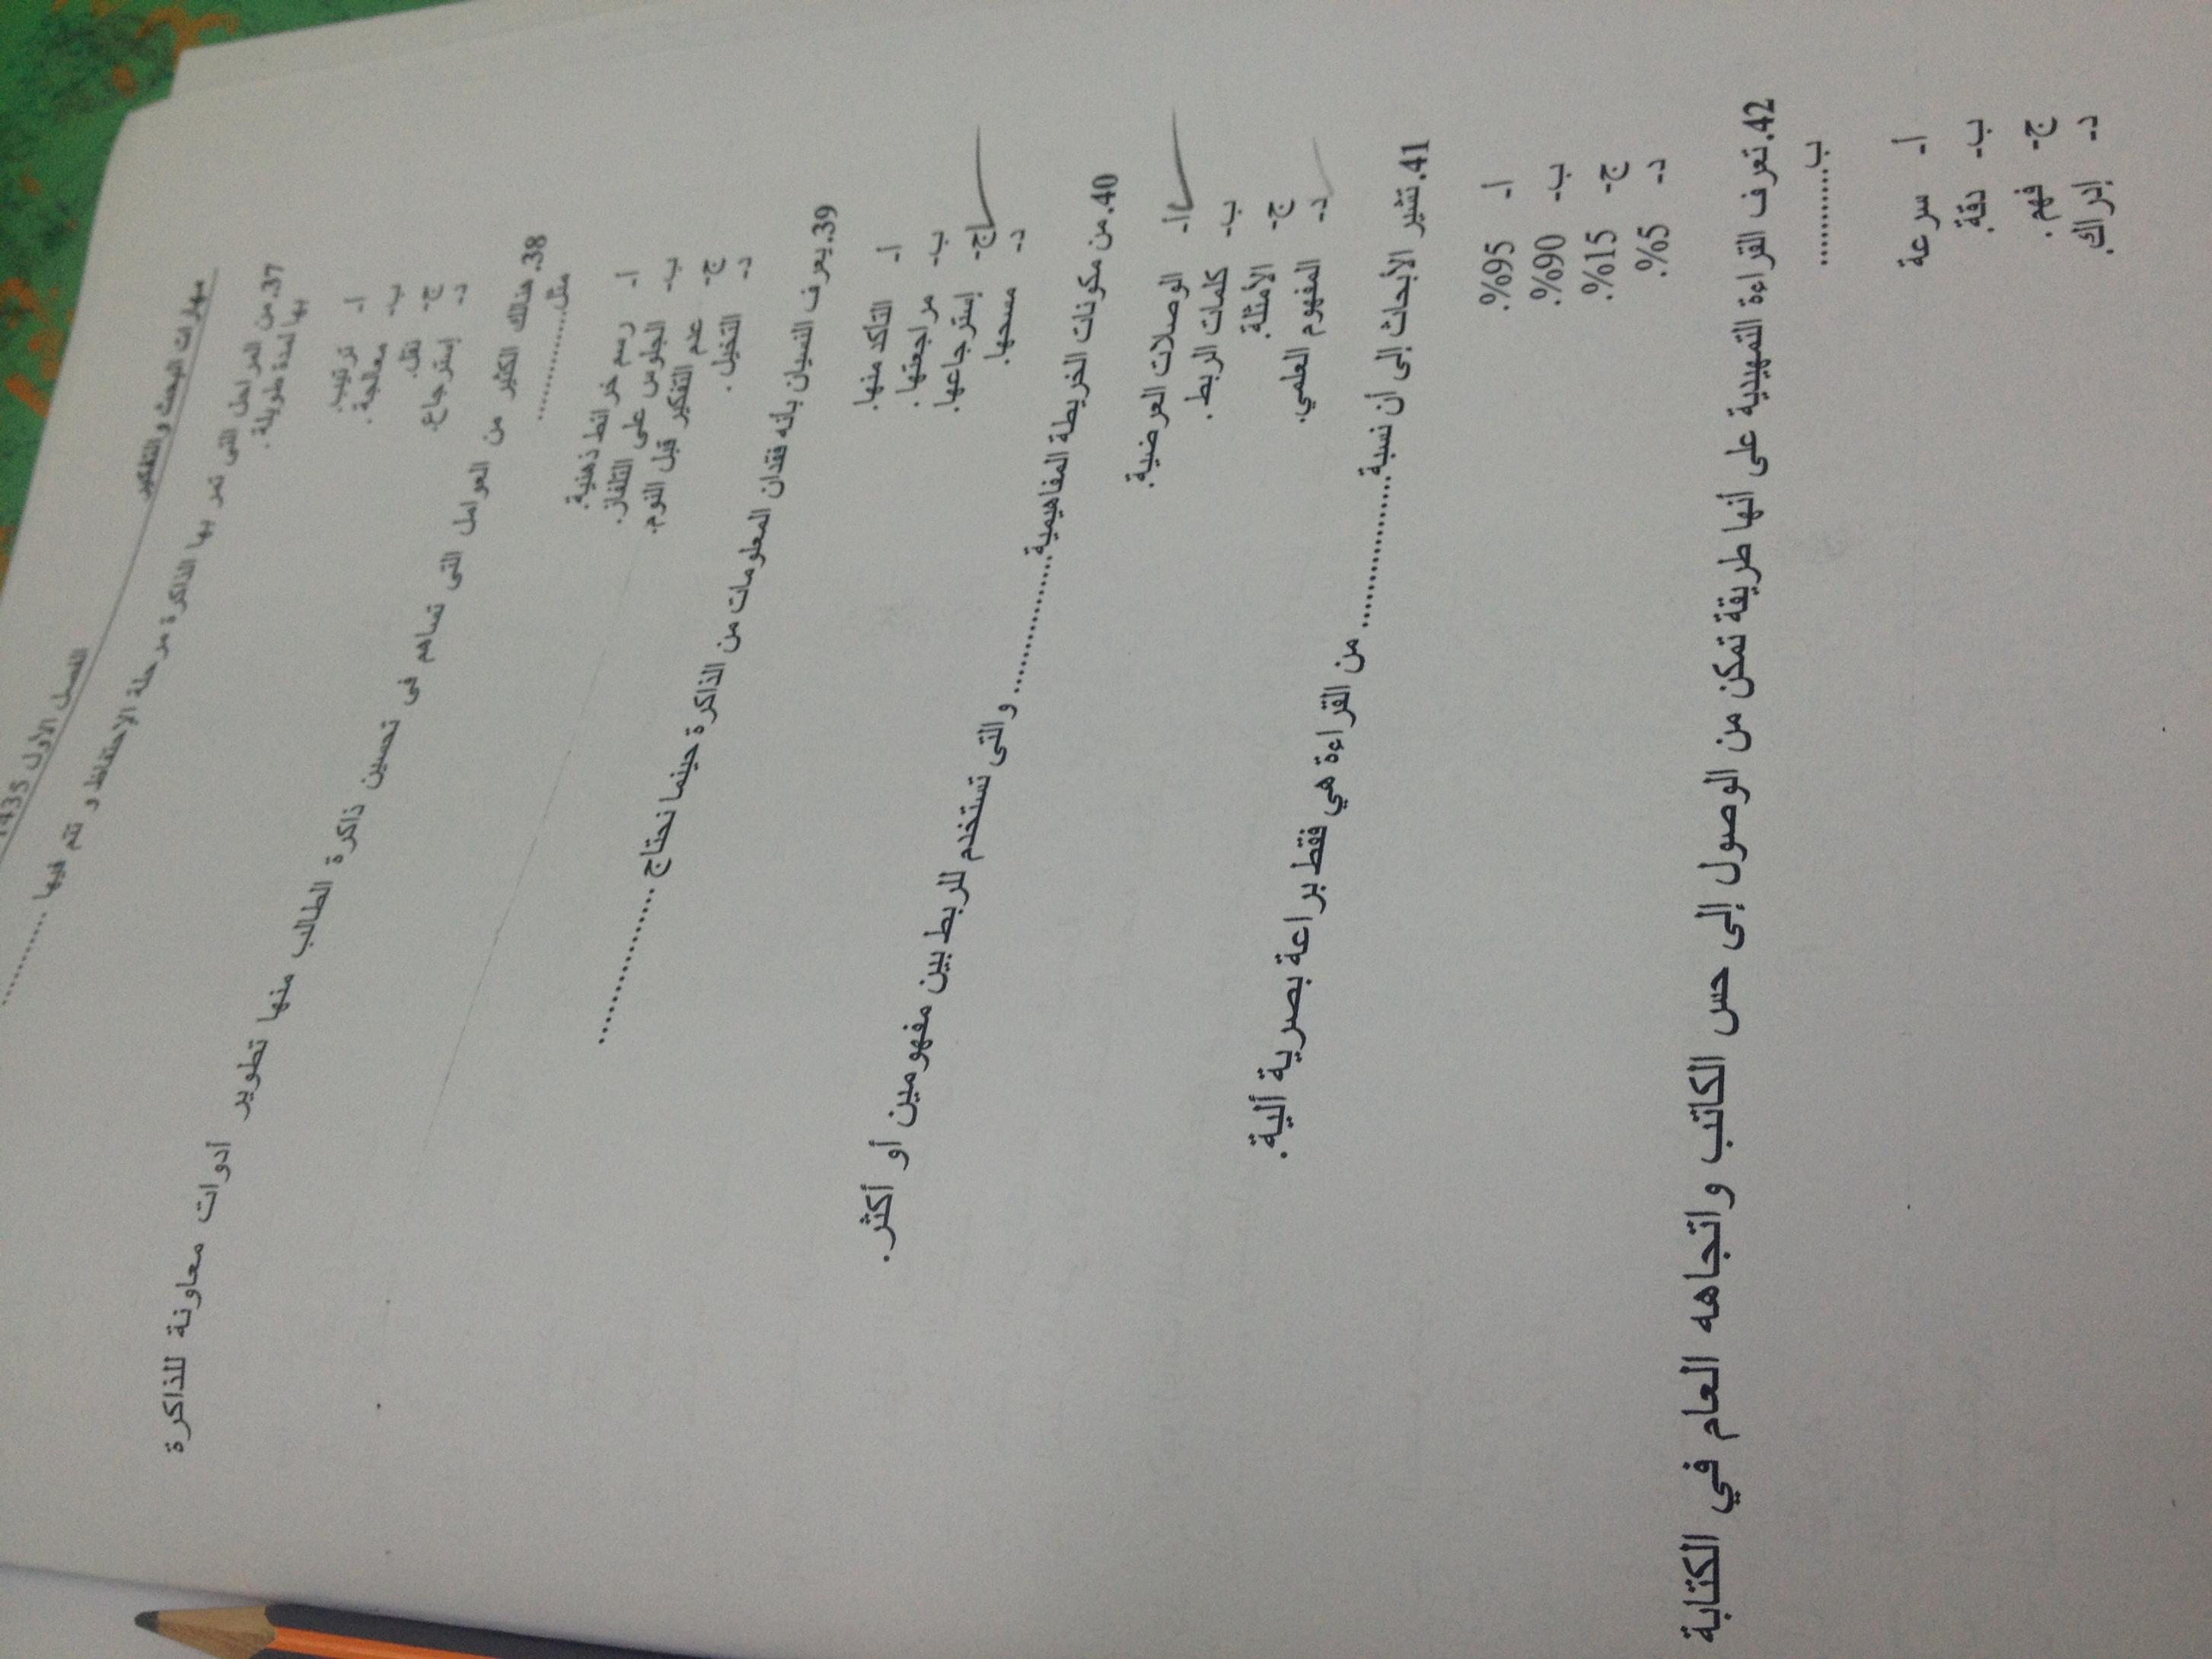 مهارات البحث والتفكير
الفصل الأول 1435
37. من المراحل التى تمر بها الذاكرة مرحلة الاحتفاظ و تتم فيها ............
بها لمدة طويلة .
أ- ترتيب.
ب- معالجة.
ج- نقل.
د- إسترجاع.
38. هنالك الكثير من العوامل التى تساهم فى تحسين ذاكرة الطالب منها تطوير أدوات معاونة للذاكرة
مثل............
أ- رسم خرائط ذهنية.
ب- الجلوس على التلفاز.
ج- عدم التفكير قبل النوم.
د- التخيل .
39. يعرف النسيان بأنه فقدان المعلومات من الذاكرة حينما نحتاج ..............
أ- التأكد منها.
ب- مراجعتها .
ج- إسترجاعها.
د- مسحها.
40. من مكونات الخريطة المفاهيمية.............. والتى تستخدم للربط بين مفهومين أو أكثر.
أ- الوصلات العرضية.
ب- كلمات الربط .
ج- الأمثلة.
د- المفهوم العلمي.
41. تشير الأبحاث إلى أن نسبة.............. من القراءة هي فقط براعة بصرية ألية.
أ- 95%.
ب- 90%.
ج- 15%.
د- 5%.
42. تعرف القراءة التمهيدية على أنها طريقة تمكن من الوصول إلى حس الكاتب واتجاهه العام في الكتابة
ب...........
أ- سرعة
ب- دقة.
ج- فهم .
د- إدراك.